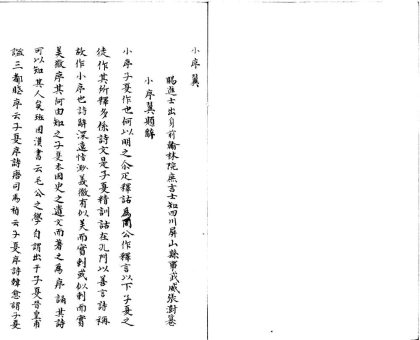 小序翼
賜進士出身前翰林院庶吉士知四川屏山縣事武威張澍纂
小序翼題辭
小序子夏作也何以明之尒疋釋詁為周公作釋言以下子夏之
徒作其所釋多係詩文是子夏精訓詁在孔門以善言詩稱
故作小序也詩辭深遠恉渺義微有似美而實刺或似刺而實
美微序其何由知之子夏本國史之遺文而著之為序誦其詩
可以知其人矣班固漢書云毛公之學自謂出于子夏晉皇甫
謐三都賦序云子夏序詩唐司馬貞云子夏序詩韓愈謂子夏